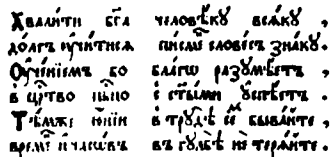 Хвалити бг҃а человѣкꙋ всякꙋ ,
до́лгъ ᲂу҆чи́тися писме́нъ слове́съ зна́кꙋ .
Оу҆че́нїемъ бо бла́гѡ разꙋмѣ́етъ ,
в цр҃тво нб҃но с ст҃ы́ми ᲂу҆спѣ́етъ .
Тѣ́мже ю҆́нїи в трꙋдѣ̀ се́мъ быва́йте ,
вре́мѧ и҆ часѡ́въ въ гꙋльбѣ̀ не теря́йте .